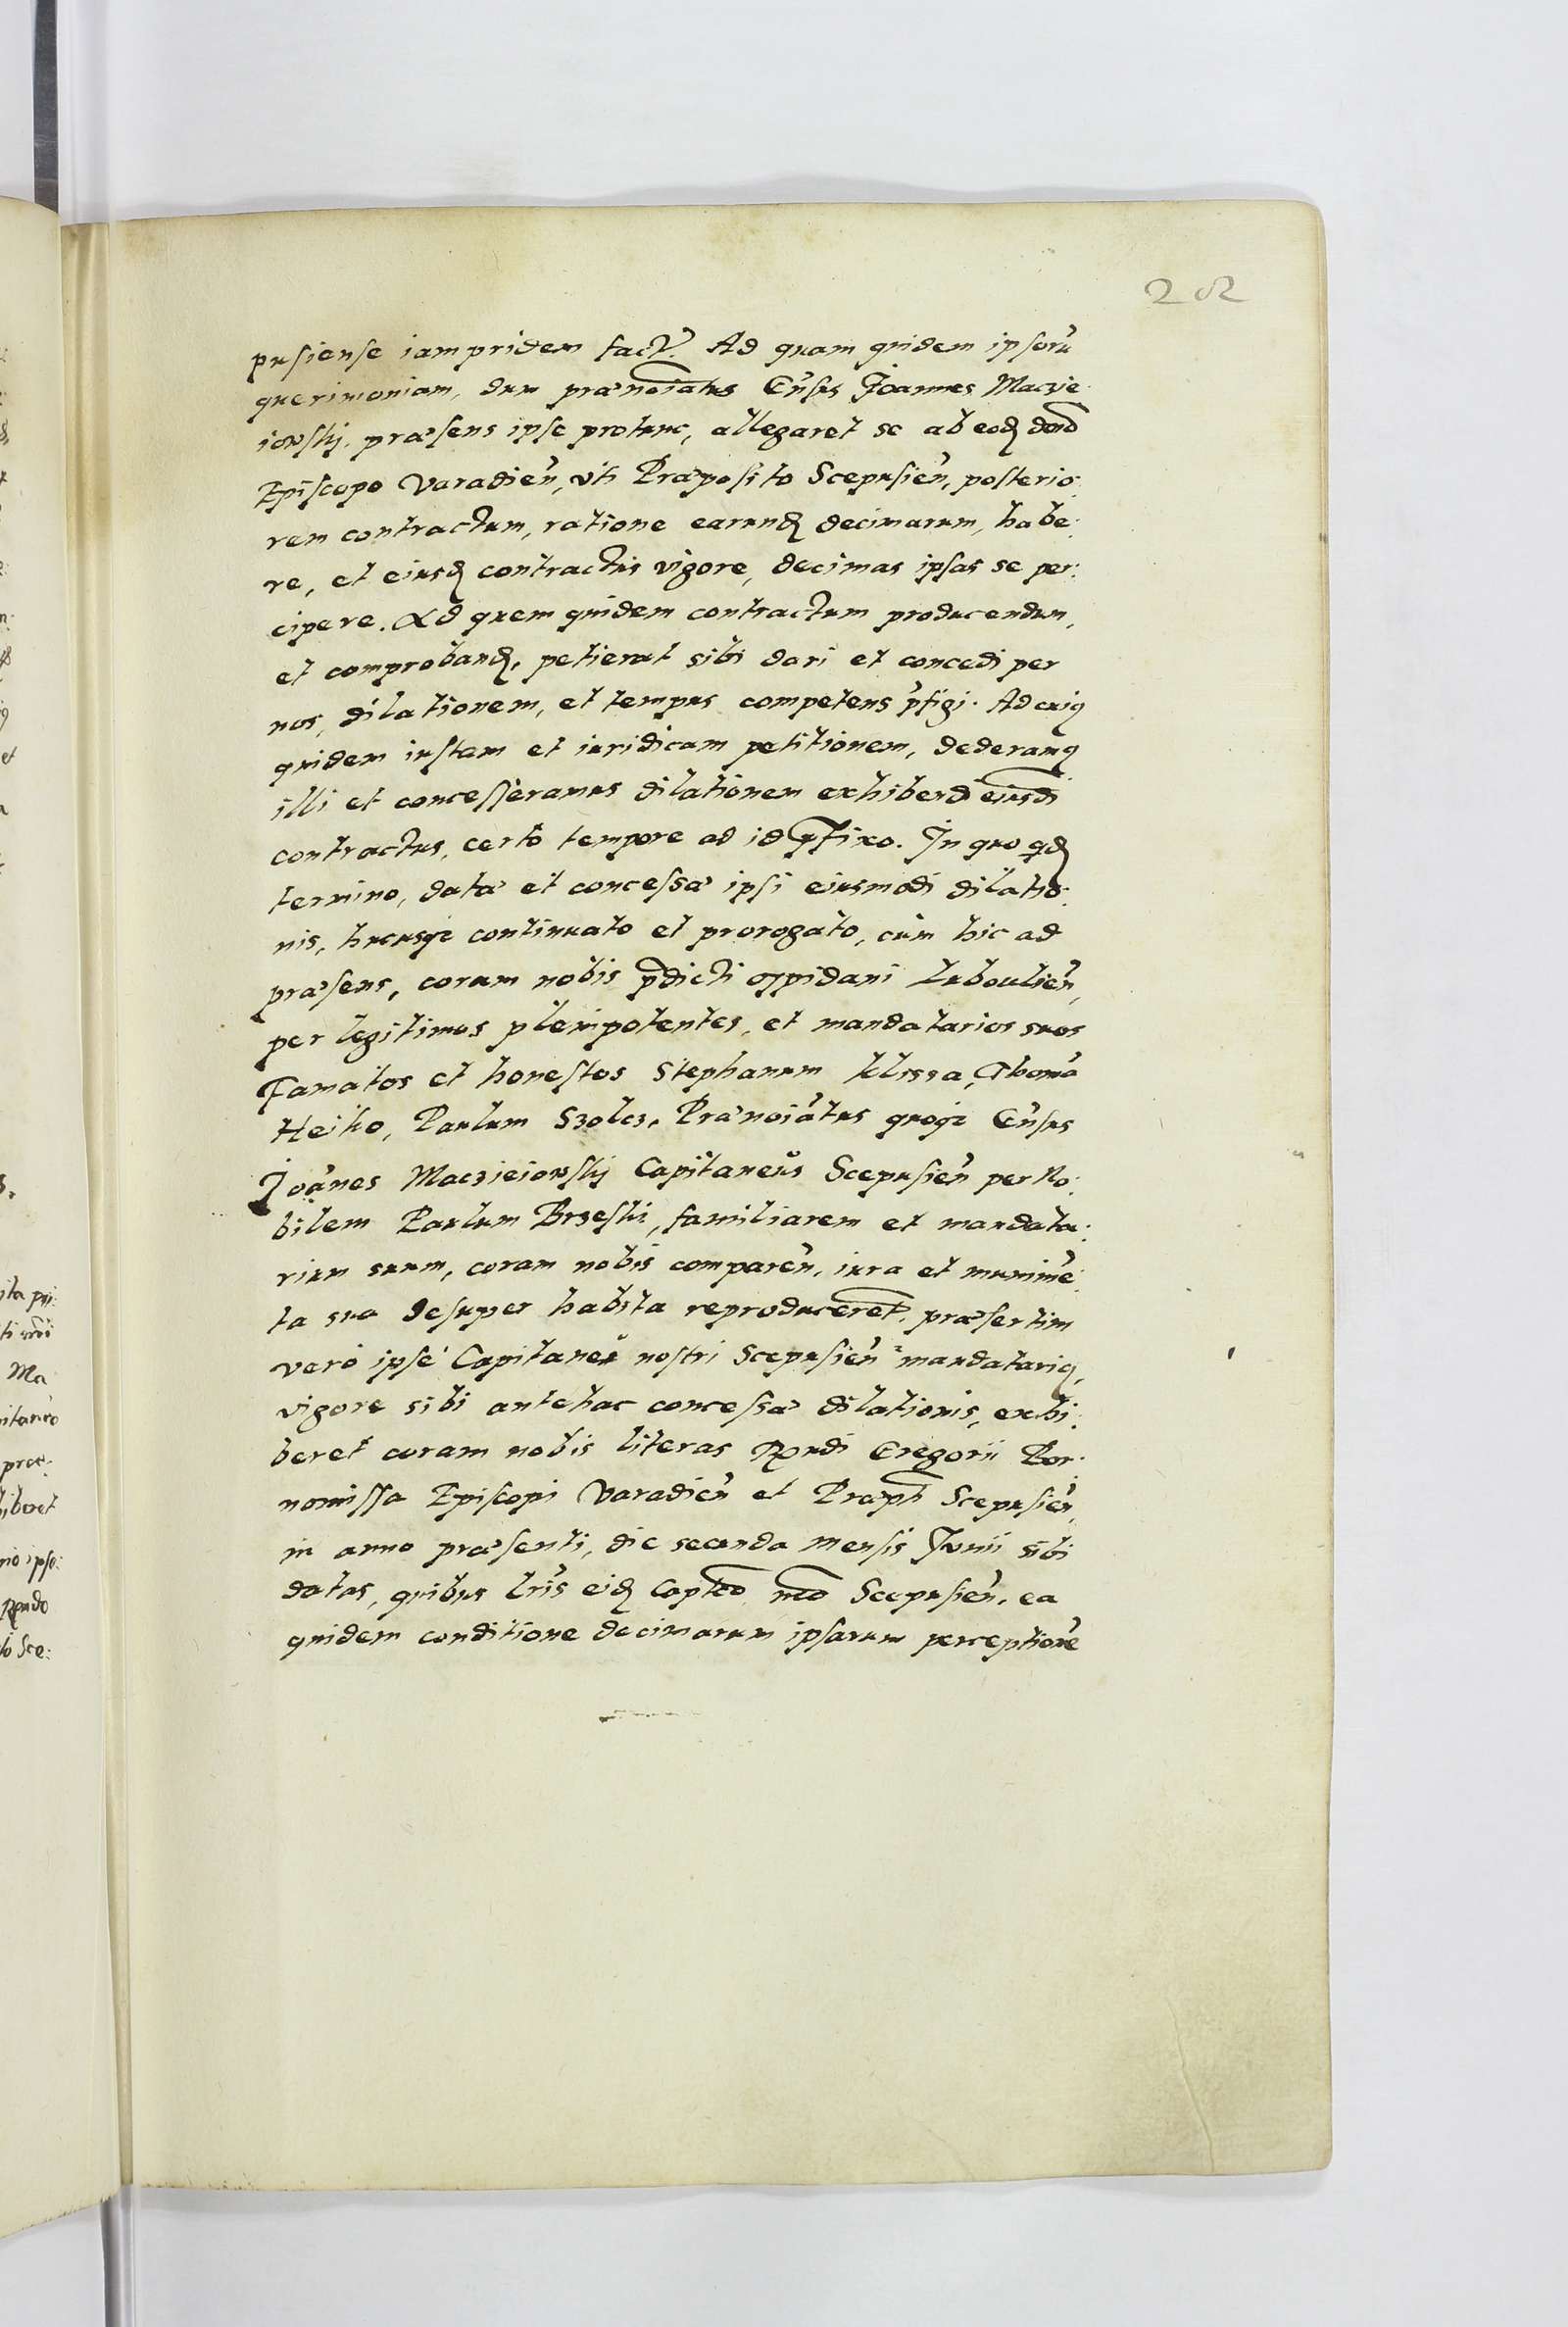 202
pusiense iam pridem fact'. Ad quam quidem ipsorū
querimoniam, dum prænoīatus Gn̄sus Joannes Maczie
iowskij, præsens ipse protunc, allegaret se ab eodē dn̄o
Episcopo Varadien̄, vti Præposito Scepusien̄, posterio:
rem contractum, ratione earundē decimarum, habe:
re, et eiusdē contractus vigore, decimas ipsas se per:
cipere. Ad quem quidem contractum producendum,
et comprobandē, petierat sibi dari et concedi per
nos, dilationem, et tempus competens p̄figi. Ad cuiꝯ
quidem iustam et iuridicam petitionem, dederamꝯ
illi et concesseramus dilationem exhibendi eiusdē
contractus, certo tempore ad id p̄fixo. In quo qdē
termino, datæ et concessæ ipsi eiusmodi dilatio:
nis, hucusqꝫ continuato et prorogato, cùm hic ad
præsens, coram nobis p̄dicti oppidani Lubowlien̄,
per legitimos plenipotentes, et mandatarios suos
Famatos et honestos Stephanum Klissa, Thomā
Heiko, Paulum Szolcz. Prænoīatus quoqꝫ Gn̄sus
Joānes Maczieiowskij Capitaneus Scepusien̄ per No:
bilem Paulum Brzeski, familiarem et mandata:
rium suum, coram nobis comparen̄, iura et munimē:
ta sua desuper habita reproducerēt, præsertim
verò ipse Capitanei nostri Scepusien̄ mandatariꝯ,
vigore sibi antehac concessæ dilationis, exhi:
beret coram nobis literas Rn̄di Gregorii Bor:
nomissa Episcopi Varadien̄ et Præpti Scepusien̄,
in anno præsenti, die secunda mensis Junii sibi
datas, quibus lr̄is eidē Captēo nr̄o Scepusien̄, ea
quidem conditione decimarum ipsarum perceptionē